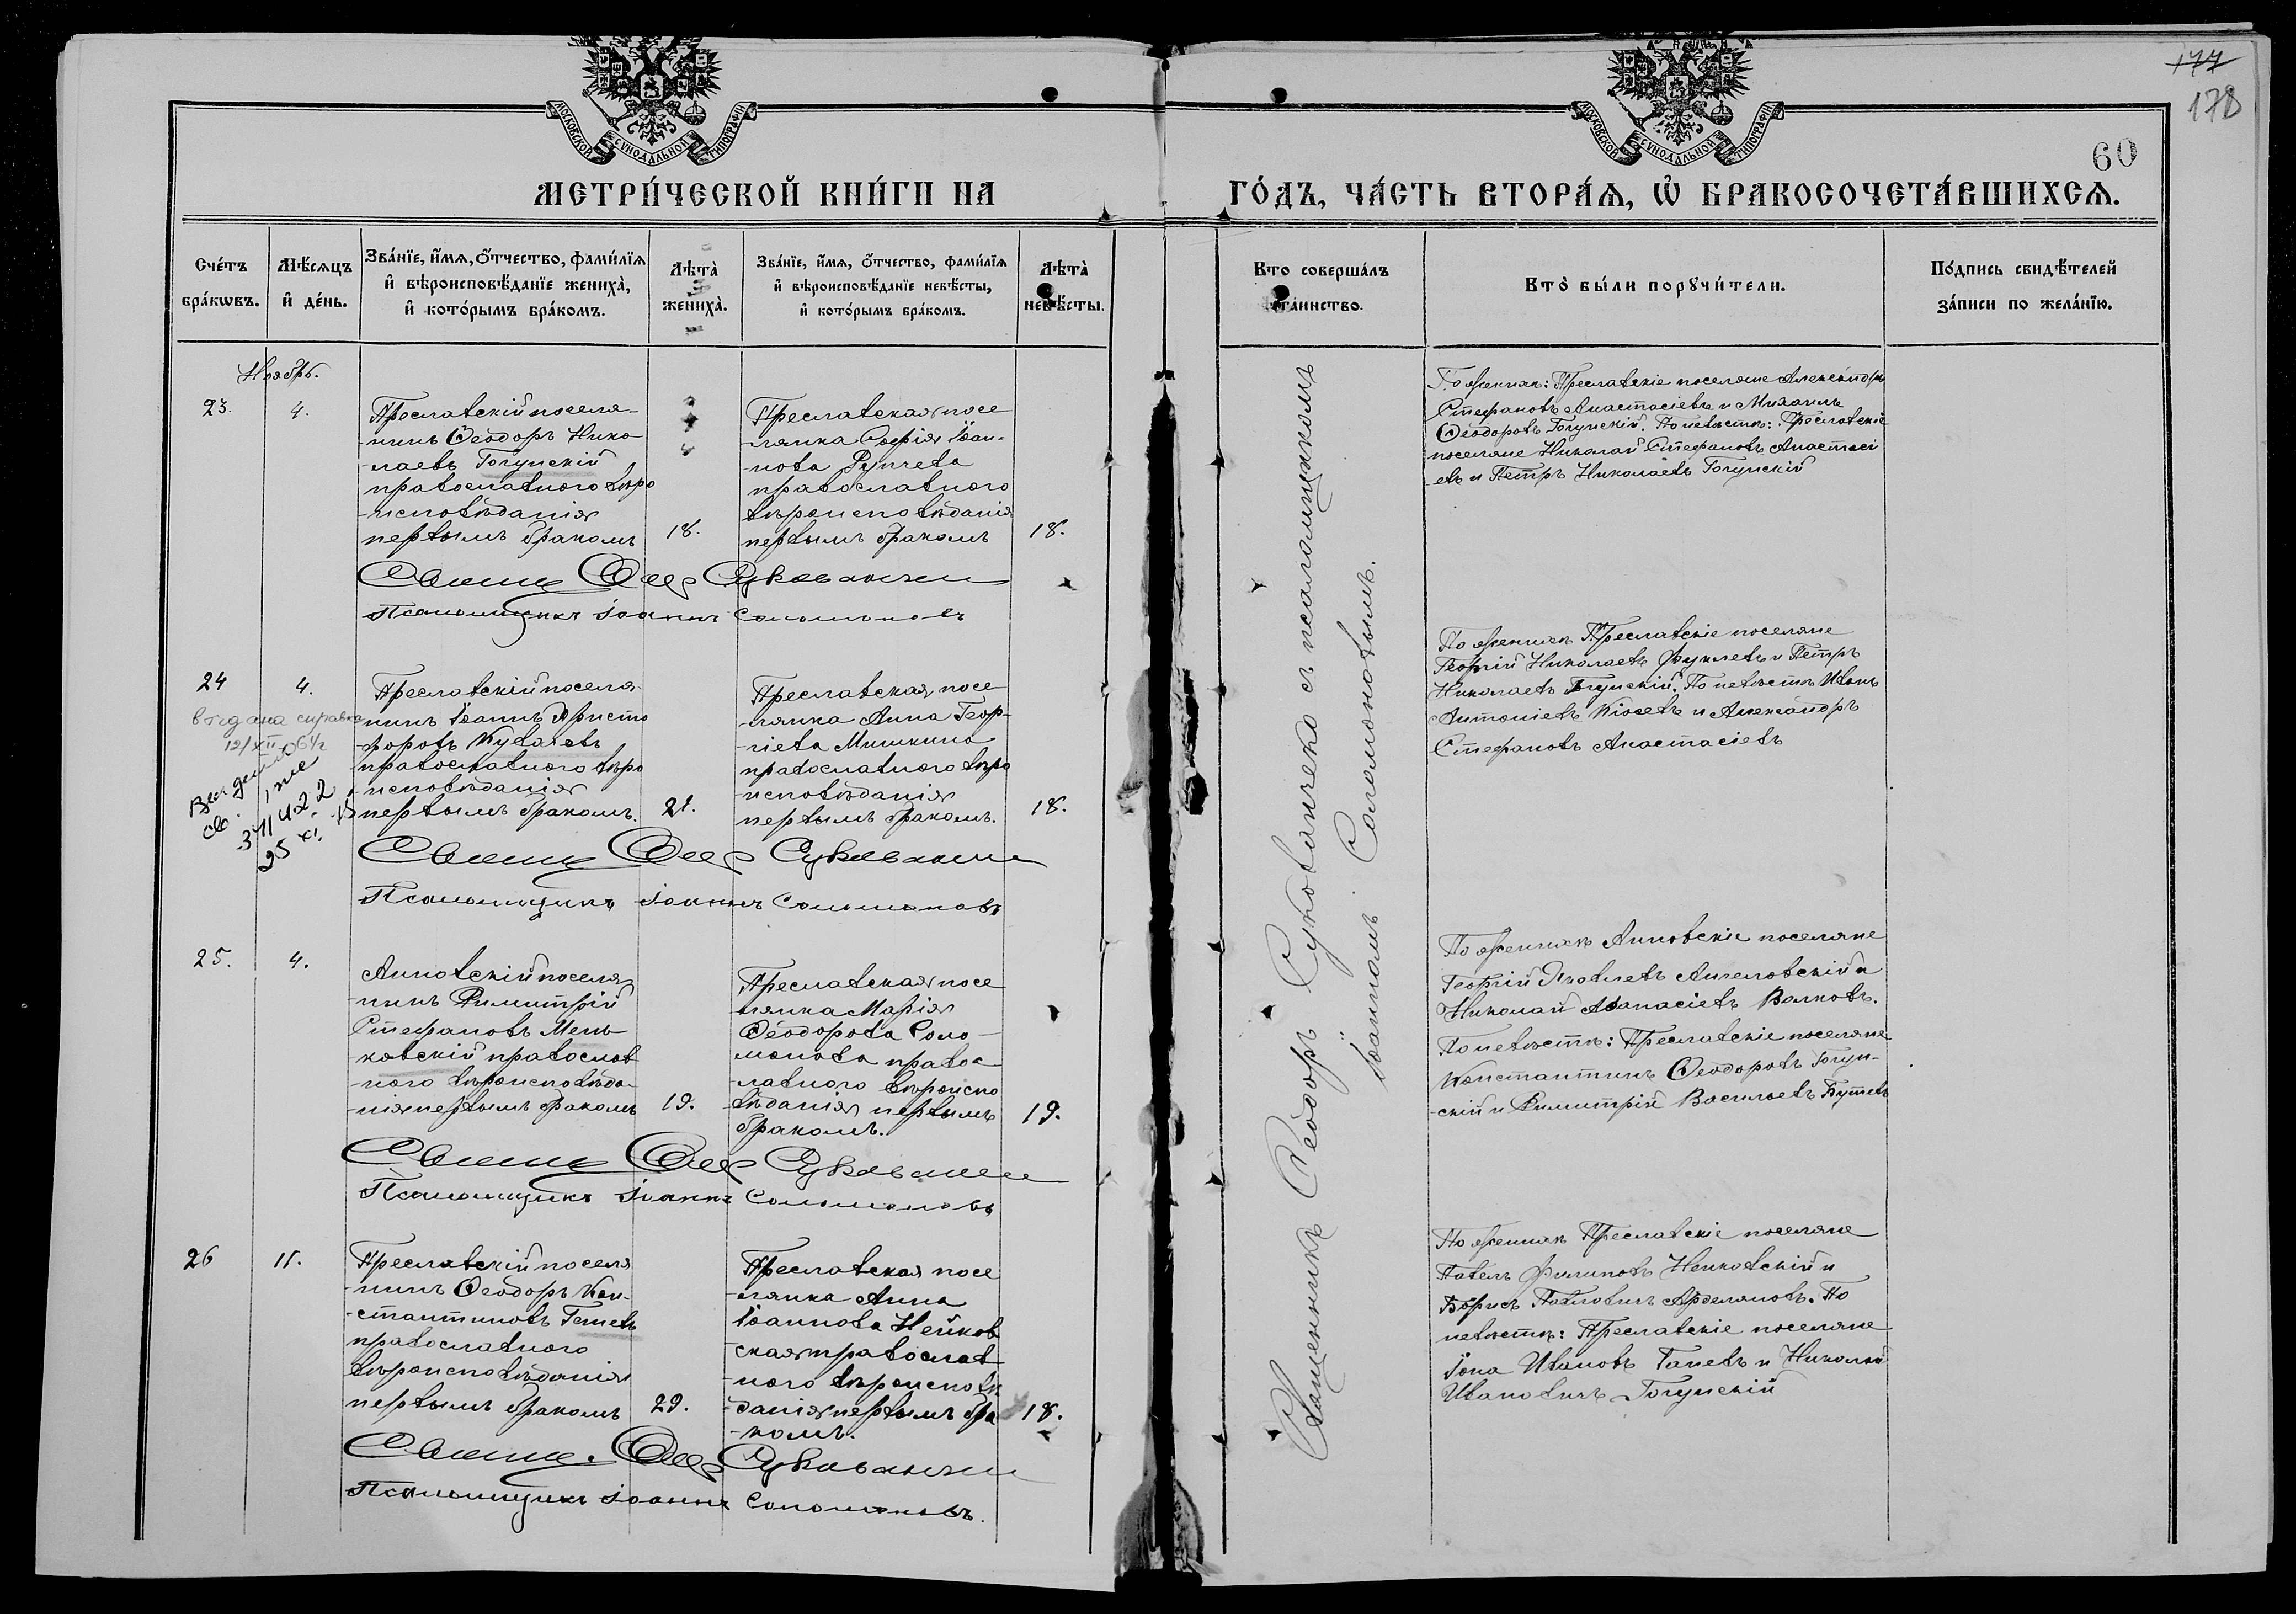 177
178
60
МОСКОВСКОЙ СѴНОДАЛЬНОЙ ТИПОГРАФІИ
МОСКОВСКОЙ СѴНОДАЛЬНОЙ ТИПОГРАФІИ
МЕТРИ́ЧЕСКОЙ КНИ́ГИ НА
ГО́ДЪ, ЧА́СТЬ ВТОРА́Ѧ, Ѡ҆ БРАКОСОЧЕТА́ВШИХСѦ.
Сче́тъ
бра́кѡвъ.
Мѣ́сѧцъ
и҆ де́нь.
Зва́нїе, и҆́мѧ, ѻ҆́тчество, фами́лїѧ
и҆ вѣроисповѣ́данїе жениха̀,
и҆ кото́рымъ бра́комъ.
Лѣта̀
жениха̀.
Зва́нїе, и҆́мѧ, ѻ҆́тчество, фами́лїѧ
и҆ вѣроисповѣ́данїе невѣ́сты,
и҆ кото́рымъ бра́комъ.
Лѣта̀
невѣ́сты.
Кто соверша́лъ
таинство.
Кто̀ бы́ли порꙋчи́тели.
По́дпись свидѣ́телей
за́писи по жела́нїю.
Ноябрь.
23.
4.
Преславскій поселя-
-нинъ Ѳеодоръ Нико
-лаевъ Гогунскій
православнаго вѣро
-исповѣданія
первымъ бракомъ
18.
Преславская посе
-лянка Софія Іоан-
-нова Рупчева
православнаго
вѣроисповѣданія
первымъ бракомъ
18.
По женихѣ: Преславскіе поселяне Александръ
Стефановъ Анастасіевъ и Михаилъ
Ѳеодоровъ Гогунскій. По невѣстѣ: Преславскіе
поселяне Николай Стефановъ Анастасі
-евъ и Петръ Николаевъ Гогунскій
Псаломщикъ Іоаннъ Соломоновъ
24
4.
Преславскій поселя-
-нинъ Іоаннъ Христо
-форовъ Кувалевъ
православнаго вѣро
-исповѣданія
первымъ бракомъ.
21.
Преславская посе
-лянка Анна Геор-
-гіева Мишкина
православнаго вѣро
исповѣданія
первымъ бракомъ.
18.
По женихѣ Преславскіе поселяне
Георгій Николаевъ Фуклевъ и Петръ
Николаевъ Гогунскій. По невѣстѣ Иванъ
Антоніевъ Кіосевъ и Александръ
Стефановъ Анастасіевъ
справка
25 XI
Псаломщикъ Іоаннъ Соломоновъ
25.
4.
Анновскій поселя
-нинъ Димитрій
Стефановъ Мень
-ковскій православ
-наго вѣроисповѣда-
-нія первымъ бракомъ
19.
Преславская посе
-лянка Марія
Ѳеодорова Соло-
-монова правос-
-лавнаго вѣроиспо
вѣданія первымъ
бракомъ.
19.
По женихѣ Анновскіе поселяне
Георгій Яковлевъ Ангеловскій и
Николай Аѳанасіевъ Волковъ.
По невѣстѣ: Преславскіе поселяне
Константинъ Ѳеодоровъ Гогун-
-скій и Димитрій Васильевъ Бутевъ
Псаломщикъ Іоаннъ Соломоновъ
26
11.
Преславскій поселя
-нинъ Ѳеодоръ Кон-
-стантиновъ Гешевъ
православнаго
вѣроисповѣданія
первымъ бракомъ
29.
Преславская посе
-лянка Анна
Іоаннова Нейков
-ская православ
-наго вѣроисповѣ
-данія первымъ бра
-комъ.
18.
По женихѣ Преславскіе поселяне
Павелъ Филиповъ Нейковскій и
Борисъ Павловичъ Арделяновъ. По
невѣстѣ: Преславскіе поселяне
Іона Ивановъ Ганевъ и Николай
Ивановичъ Гогунскій
Псаломщикъ Іоаннъ Соломоновъ.
Священникъ Ѳеодоръ Суковатченко съ псаломщикомъ
Іоанномъ Соломоновымъ.